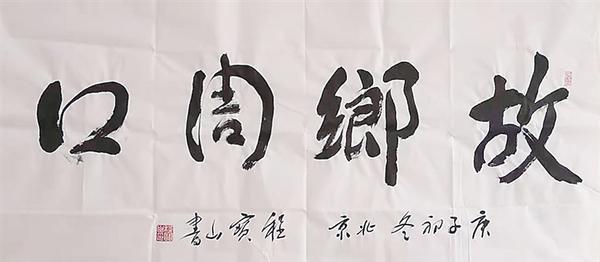 故鄉周口
庚子初冬北京 程寳山書